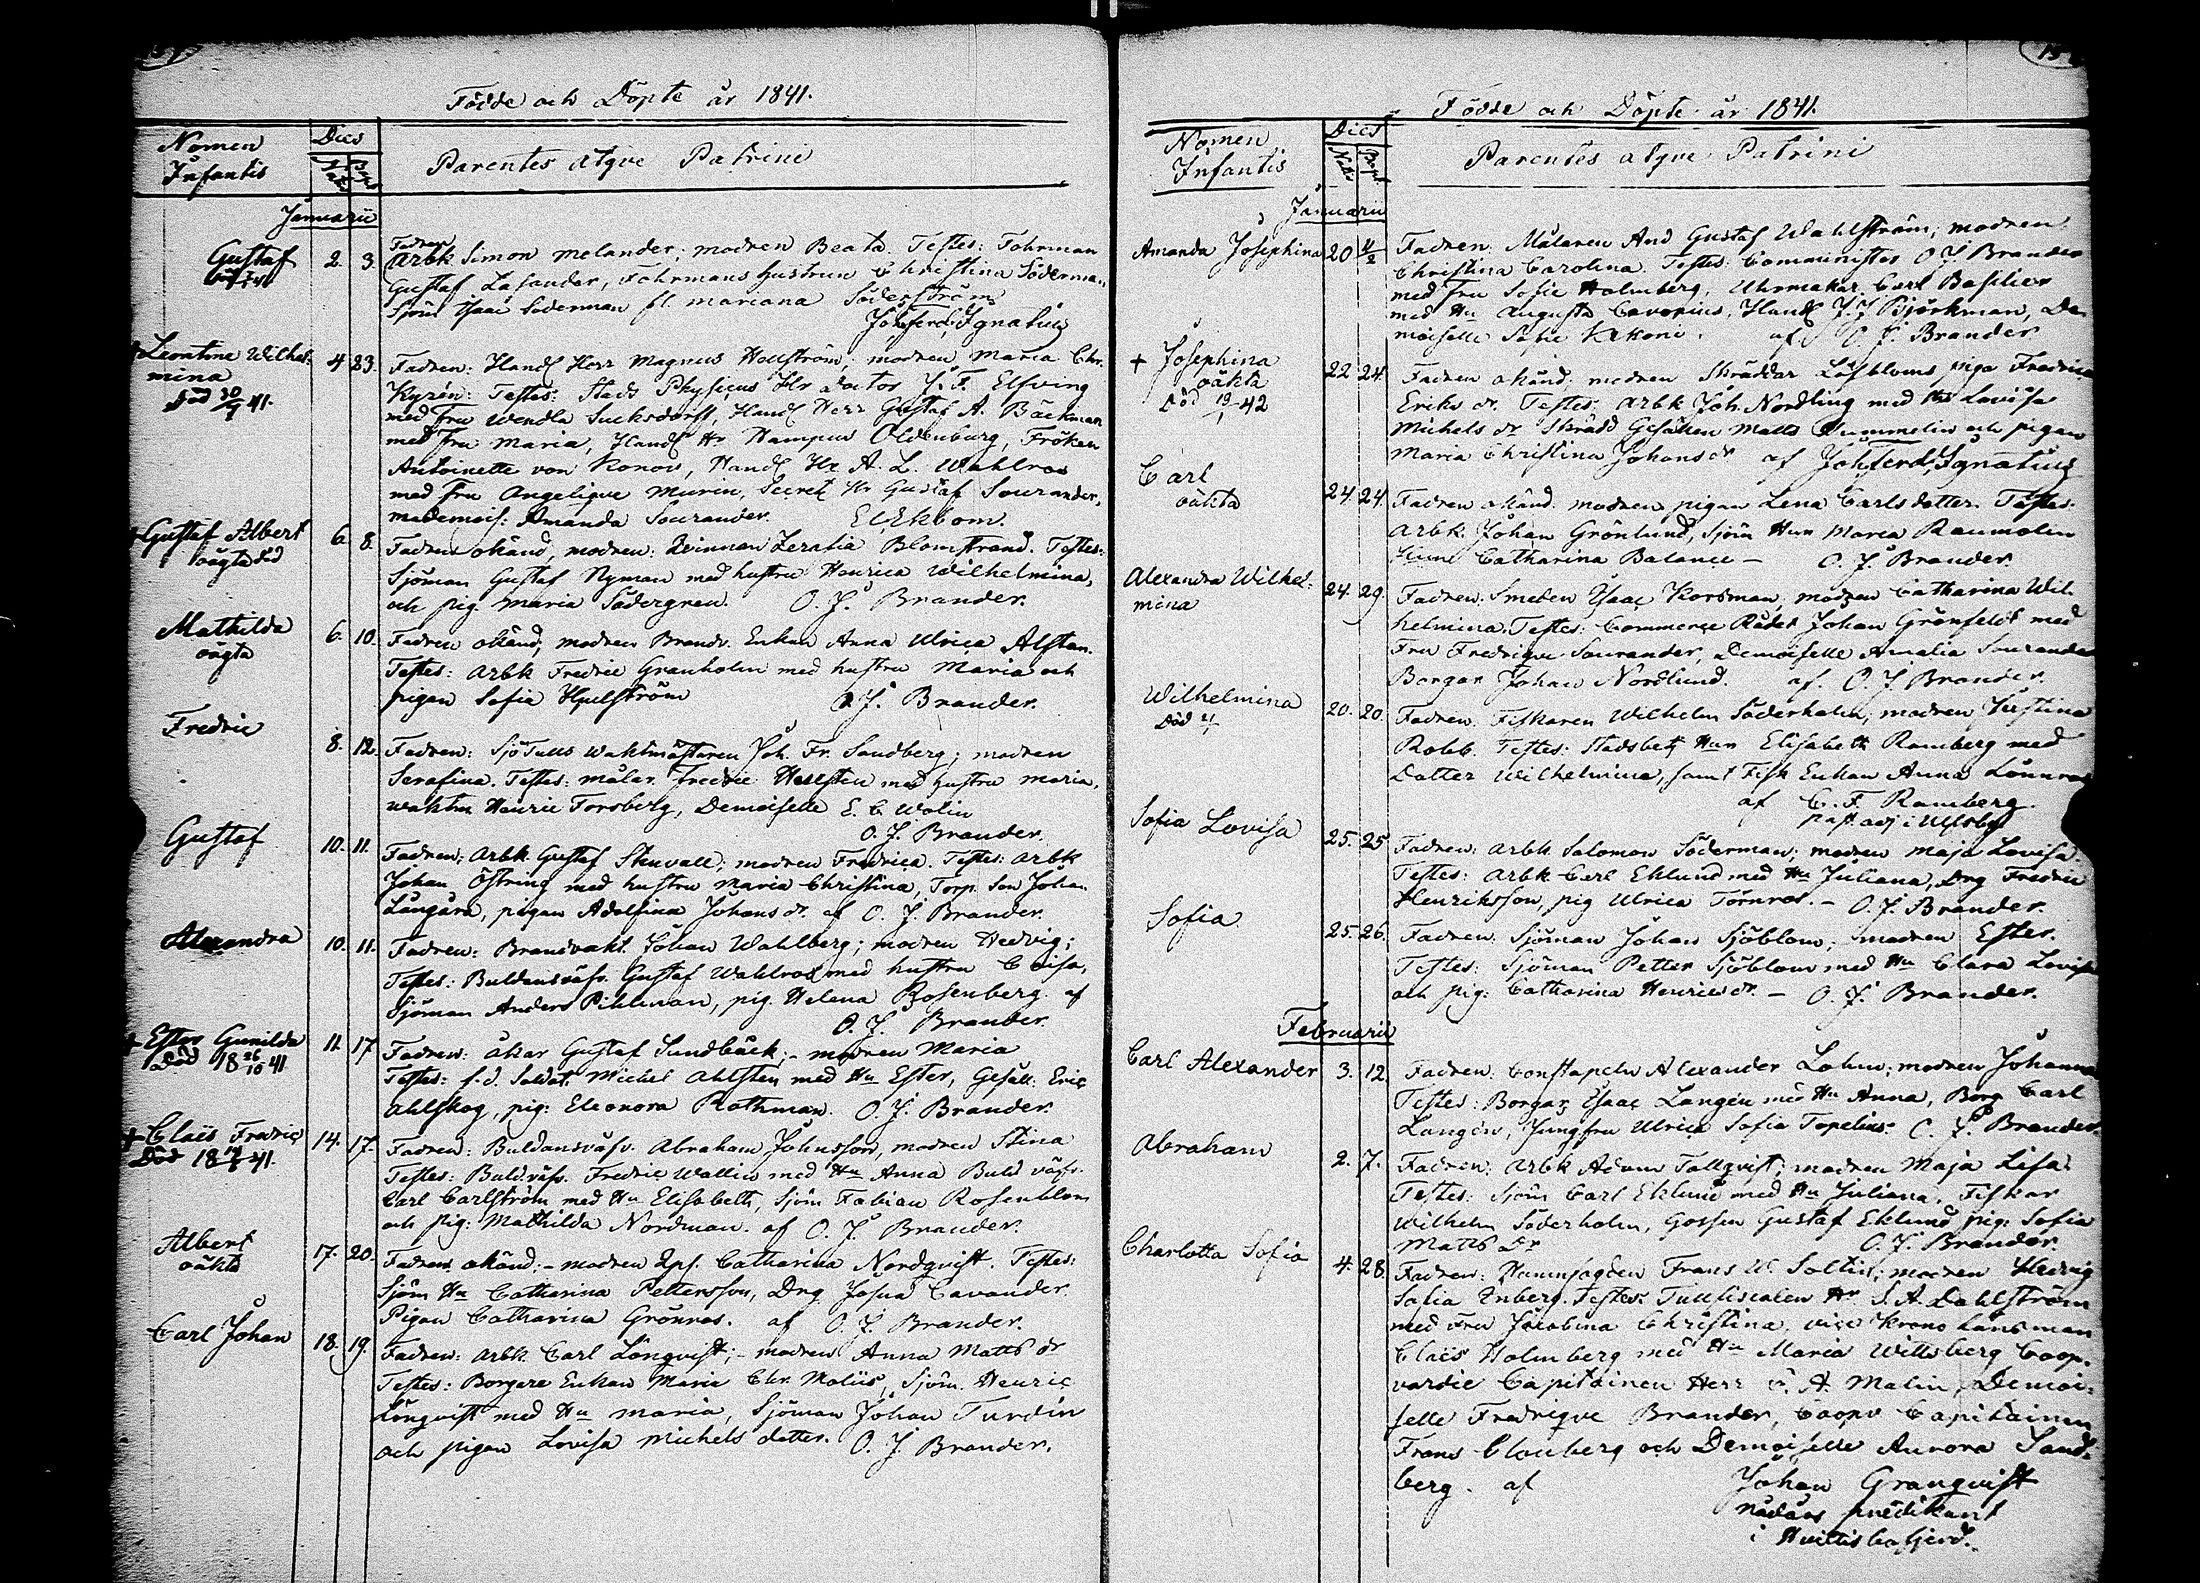 Födde och Döpte år 1841.
Nomen Infantis
Dies
Nat. Bapt.
Parentes atqve Patrini
Januarii
Gustaf
2. 3.
Fadren
Arbk Simon Melander; modren Beata. Testes: Fohrman
Gustaf Lasander, Fohrmans hustrun Christina Söderman
Sjöm Isaac Söderman fl. Mariana Söderström
Joh. Ferd. Ignatius
Leontine Wilhel-
mina
död 30/7 41.
4 23.
Fadren: Handl Herr Magnus Hellström; modren Maria Chr.
Kyrén: Testes: Stads Physicus Hr Doctor J. F. Elfving
med Fru Wendla Sucksdorff, Handl Herr Gustaf A. Bäckman
med Fru Maria, Handl Hr Hampus Oldenburg, Fröken
Antoinette von Konow, Handl Hr A. L. Wahlroos
med Fru Angelique Murin, Secret Hr Gustaf Sourander,
mademois: Amanda Sourander. Ekbom.
Gustaf Albert
oägta död
6. 8.
Fadren okänd, modren: Qvinnan Zeralia Blomstrand. Testes:
Sjöman Gustaf Nyman med hustru Henrica Wilhelmina,
och pig. Maria Södergren. O. J. Brander.
Mathilda
oägta
6. 10.
Fadren okänd, modren Brandv. Enkan Anna Ulrica Alstan.
Testes: Arbk Fredric Granholm med hustru Maria och
pigan Sofia Hjulström O. J. Brander.
Fredric
8. 12.
Fadren: Sjö Tulls Waktmästaren Joh. Fr. Sandberg; modren
Serafina. Testes: målar. Fredric Hellsten med hustru Maria,
waktm Henric Forsberg, Demoiselle E. C. Wolin
O. J. Brander.
Gustaf
10. 11.
Fadren: Arbk. Gustaf Stenvall; modren Fredrica. Testes: Arbk
Johan Östring med hustru Maria Christina, Torp. Son Johan
Långård, pigan Adolfina Johans dr. af O. J. Brander.
Alexandra
10. 11.
Fadren: Brandvakt. Johan Wahlberg; modren Hedvig;
Testes: Buldansväfv. Gustaf Wahlroos med hustru Lovisa,
Sjöman Anders Pihlman, pig. Helena Rosenberg af
O. J. Brander.
Ester Gunilda
Död 18 26/10 41
11. 17
Fadren: åkar Gustaf Sundbäck; modren Maria
Testes: f.d. Soldat. Michel Ahlsten med Hu Ester, Gesäll: Eric
Ahlskog, pig: Eleonora Rothman. O. J. Brander.
Claës Fredric
Död 41.
14. 17.
Fadren: Buldansväfv. Abraham Johnsson, modren Stina
Testes: Buld.väfv. Fredric Wallin med Hu Anna Buld väfv.
Carl Carlström med Hu Elisabeth, Sjöm Fabian Rosenblom
och pig: Mathilda Nordman. af O. J. Brander.
Albert
oäkta
17. 20.
Fadren okänd; modren Qps. Catharina Nordqvist. Testes:
Sjöm Hu Catharina Pettersson, Drg Josua Cavander.
Pigan Catharina Grönroos. af O. J. Brander.
Carl Johan
18. 19.
Fadren: Arbk. Carl Lönqvist; modren Anna Matts dr
Testes: Borgare Enkan Maria Chr. Moliis, Sjöm. Henric
Lönqvist med Hu Maria, Sjöman Johan Turdin
och pigan Lovisa Michels dotter. O. J. Brander.
Födde och Döpte år 1841.
Nomen Infantis
Dies
Natis Bapt.
Parentes atqve Patrini
Januarii
Amanda Josephina
20 4/2
Fadren: Målaren And Gustaf Wahlström, modren
Christina Carolina. Testes: Comministes O. J. Brander
med Fru Sofie Holmberg, Uhrmakar Carl Basilier
med Hu Augusta Cavonius, Handl J. J Björkman, De-
moiselle Sofie Kekoni. af O. J. Brander
Josephina
oäkta
Död 19/1 42
22 24.
Fadren okänd, modren Skräddar Löfbloms piga Fredrica
Eriks dr. Testes: Arbk Joh. Nordling med Hu Lovisa
Michels dr Skrädd Gesällen Matts Dummelin och pigan
Maria Christina Johans dr af Joh. Ferd. Ignatius
Carl
oäkta
24. 24.
Fadren okänd. modren pigan Lena Carls dotter. Testes:
Arbk. Johan Grönlund, Sjöm Hun Maria Raumolin
Catharina Balance – O. J. Brander.
Alexandra Wilhel-
mina
24. 29.
Fadren: Smeden Isaac Korsman, modren Catharina Wil
helmina. Testes: Commerce Rådet Johan Grönfeldt med
Fru Fredrique Sourander, Demoiselle Amalia Sourander
Borgar Johan Nordlund. af. O. J. Brander.
Wilhelmina
Död
20. 20.
Fadren. Fiskaren Wilhelm Söderholm, modren Justina
Robb. Testes: Stadsbetj Hun Elisabeth Ramberg med
Dotter Wilhelmina, samt Fisk Enkan Anna Lönnroos
af C. F. Ramberg.
past. adj i Ulfsby
Sofia Lovisa
25. 25
Fadren: Arbk Salomon Söderman, modren Maja Lovisa.
Testes: Arbk Carl Eklund med Hu Juliana, Drg Fredric
Henriksson, pig Ulrica Törnroos. – O. J. Brander.
Sofia.
25. 26.
Fadren: Sjöman Johan Sjöblom, modren Ester.
Testes: Sjöman Petter Sjöblom med Hu Clara Lovisa
och pig: Catharina Henrics dr. – O. J. Brander.
Februarii
Carl Alexander
3. 12.
Fadren: Constapeln Alexander Lohm; modren Johanna
Testes: Borgar Isaac Langén med Hu Anna, Borg Carl
Langén, Jungfru Ulrica Sofia Topelius. O. J. Brander.
Abraham
2. 7.
Fadren: Arbk Adam Tallqvist; modren Maja Lisa
Testes: Sjöm Carl Eklund med Hu Juliana, Fiskar
Wilhelm Söderholm, Gossen Gustaf Eklund pig: Sofia
Matts Dr O. J. Brander.
Charlotta Sofia
4. 28.
Fadren: Frans W. Soltin; modren Hedvig
Sofia Enberg. Testes: Tullfiscalen Hr S. A. Dahlström
med Fru Jacobina Christina, vice Krono Länsman
Claës Holmberg med Hu Maria Wittsberg Coop-
vardie Capitainen Herr F. A. Malin, Demoi-
selle Fredriqve Brander, Coopv Capitainen
Frans Clouberg och Demoiselle Aurora Sand-
berg. af Johan Granqvist
nådårs predikant
i Hvittisbofjerd.